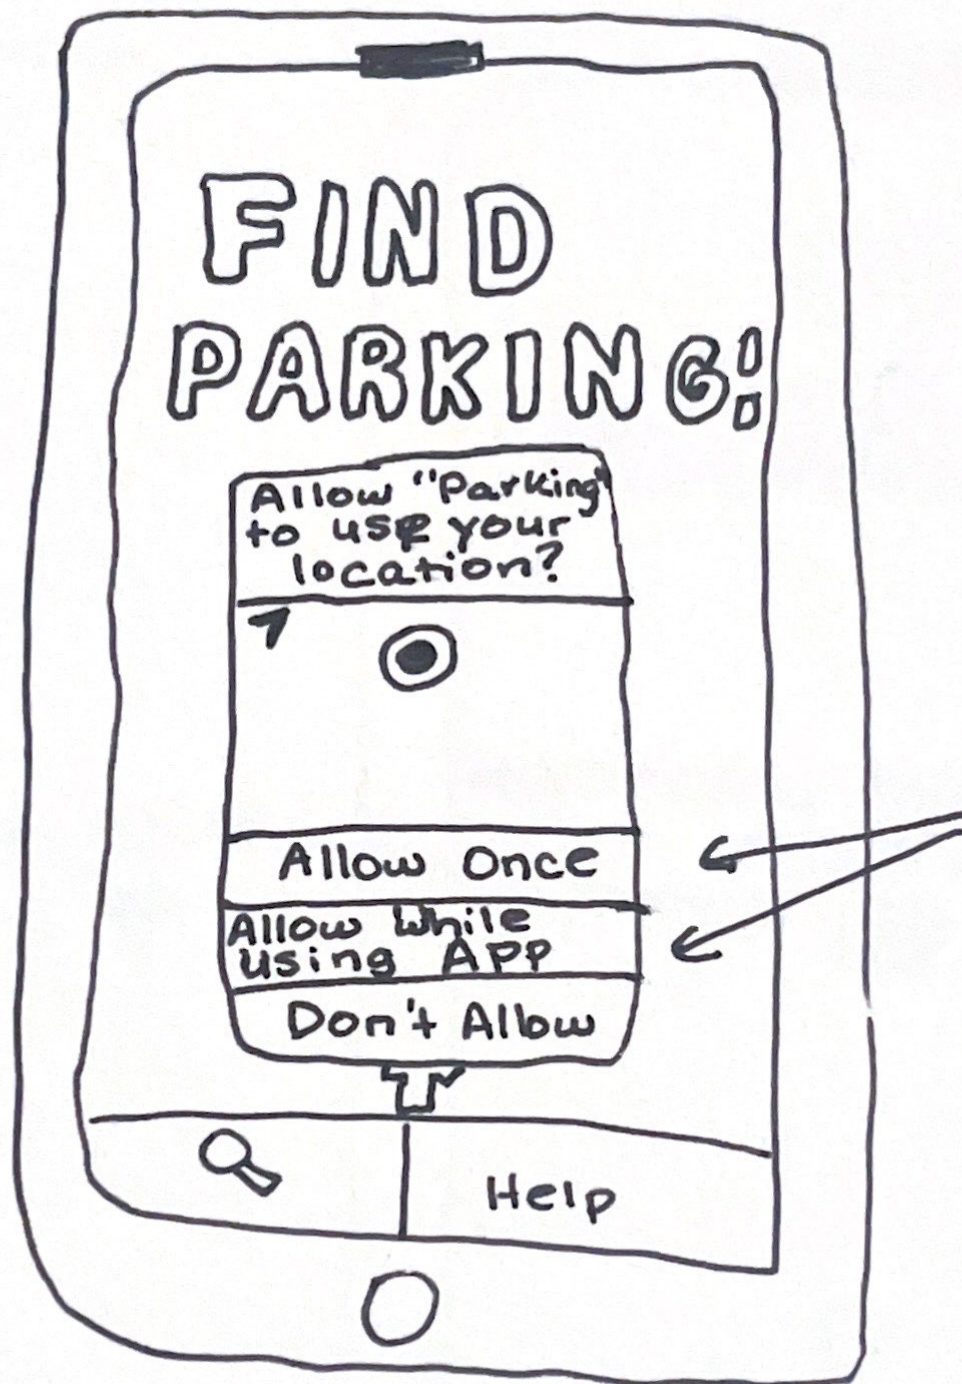 FIND
PARKING!
Allow "Parking"
to use your
location?
Allow Once
Allow While
using App
Don't Allow
Help